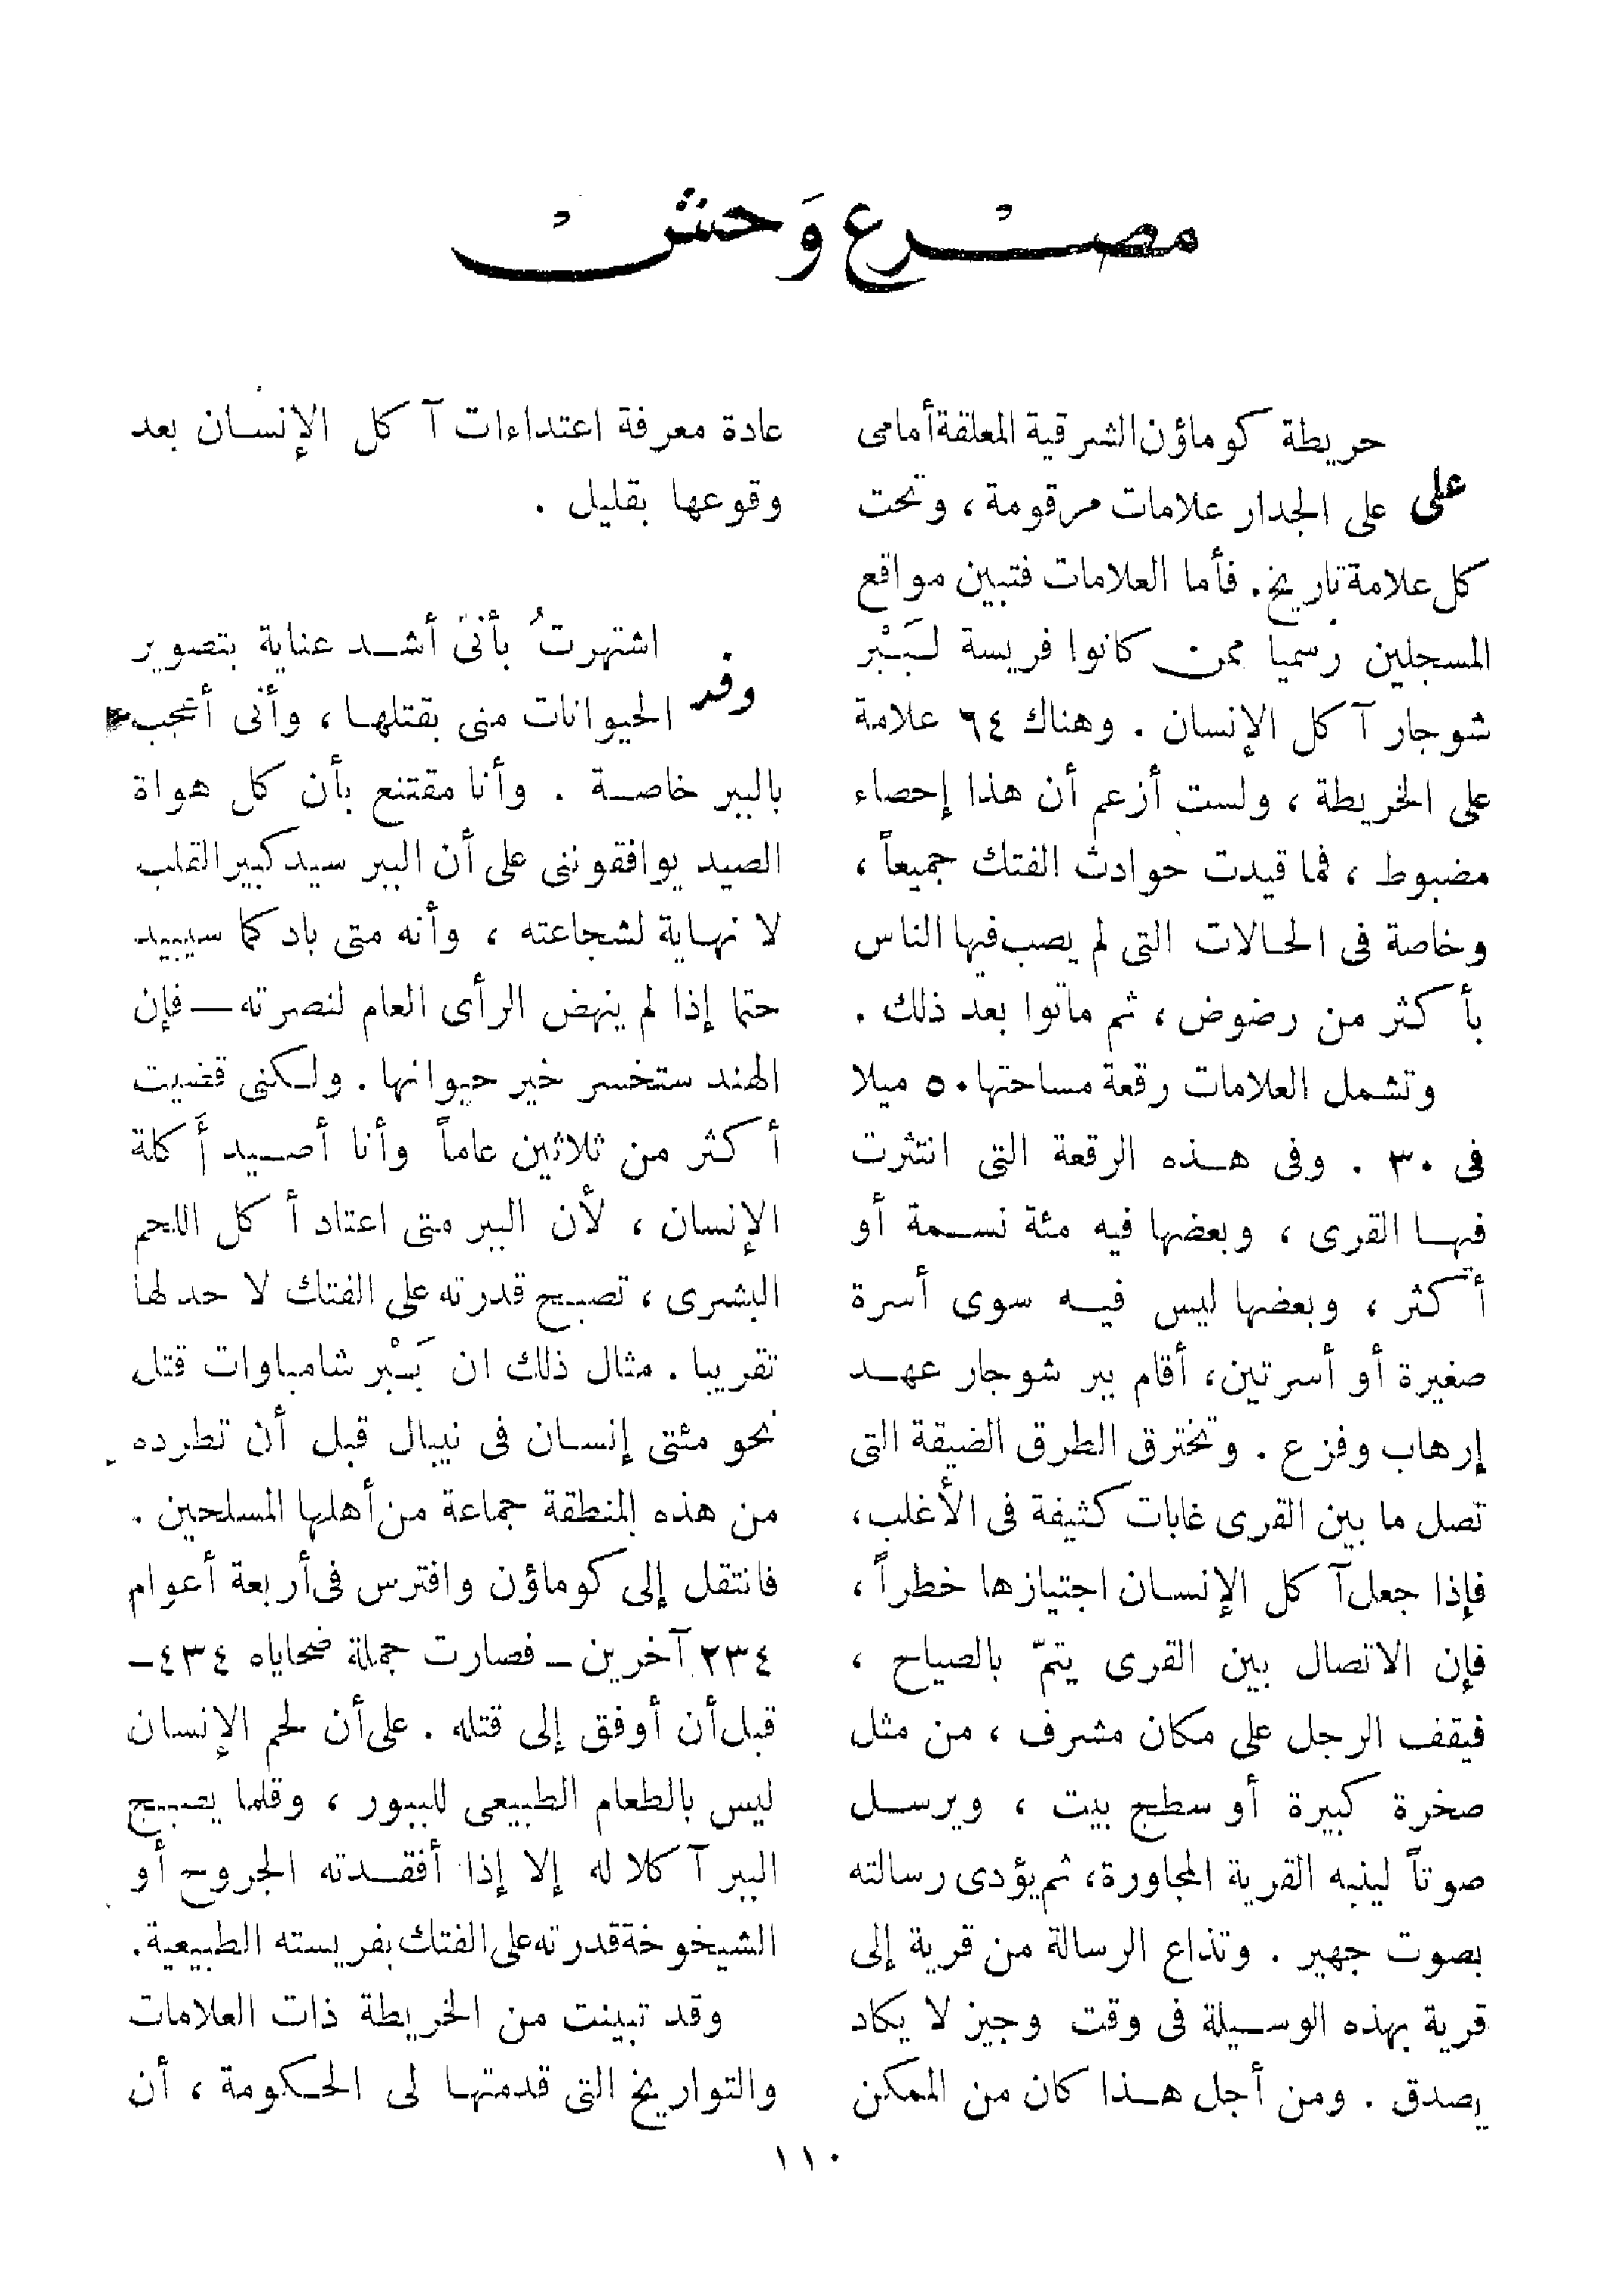 مصرع وَحشْ
على حريطة كوماؤن الشرقية المعلقة أمامى
على الجدار علامات مرقومة ، وتحت
كل علامة تاريخ . فأما العلامات فتبين مواقع
المسجلين رسميا ممن كانوا فريسة لبَبْر
شوجار آكل الإنسان . وهناك ٦٤ علامة
على الخريطة ، ولست أزعم أن هذا إحصاء
مضبوط ، فما قيدت حوادث الفتك جميعاً ،
وخاصة فى الحالات التى لم يصب فيها الناس
بأكثر من رضوض ، ثم ماتوا بعد ذلك .
وتشمل العلامات رقعة مساحتها ٥٠ ميلا
فى ٣٠ . وفى هذه الرقعة التى انتثرت
فيها القرى ، وبعضها فيه مئة نسمة أو
أكثر ، وبعضها ليس فيه سوى أسرة
صغيرة أو أسرتين ، أقام ببر شوجار عهد
إرهاب وفزع . وتخترق الطرق الضيقة التى
تصل ما بين القرى غابات كثيفة فى الأغلب ،
فإذا جعل آكل الإنسان اجتيازها خطراً ،
فإن الاتصال بين القرى يتمّ بالصياح ،
فيقف الرجل على مكان مشرف ، من مثل
صخرة كبيرة أو سطح بيت ، ويرسل
صوتاً لينبه القرية المجاورة ، ثم يؤدى رسالته
بصوت جهير . وتذاع الرسالة من قرية إلى
قرية بهذه الوسيلة فى وقت وجيز لا يكاد
يصدق . ومن أجل هذا كان من الممكن
عادة معرفة اعتداءات آكل الإنسان بعد
وقوعها بقليل .
وقد اشتهرتُ بأنى أشد عناية بتصوير
الحيوانات منى بقتلها ، وأنى أعجب
بالببر خاصة . وأنا مقتنع بأن كل هواة
الصيد يوافقوننى على أن الببر سيد كبير القلب
لا نهاية لشجاعته ، وأنه متى باد كما سيبيد
حتما إذا لم ينهض الرأى العام لنصرته — فإن
الهند ستخسر خير حيوانها . ولكنى قضيت
أكثر من ثلاثين عاماً وأنا أصيد أَكلة
الإنسان ، لأن الببر متى اعتاد أكل اللحم
البشرى ، تصبح قدرته على الفتك لا حد لها
تقريبا . مثال ذلك ان بَبْر شامباوات قتل
نحو مئتى إنسان فى نيبال قبل أن تطرده
من هذه المنطقة جماعة من أهلها المسلحين .
فانتقل إلى كوماؤن وافترس فى أربعة أعوام
٢٣٤ آخرين — فصارت جملة ضحاياه ٤٣٤ —
قبل أن أوفق إلى قتله . على أن لحم الإنسان
ليس بالطعام الطبيعى للببور ، وقلما يصبح
الببر آكلا له إلا إذا أفقدته الجروح أو
الشيخوخة قدرته على الفتك بفريسته الطبيعية .
وقد تبينت من الخريطة ذات العلامات
والتواريخ التى قدمتها لى الحكومة ، أن
١١٠